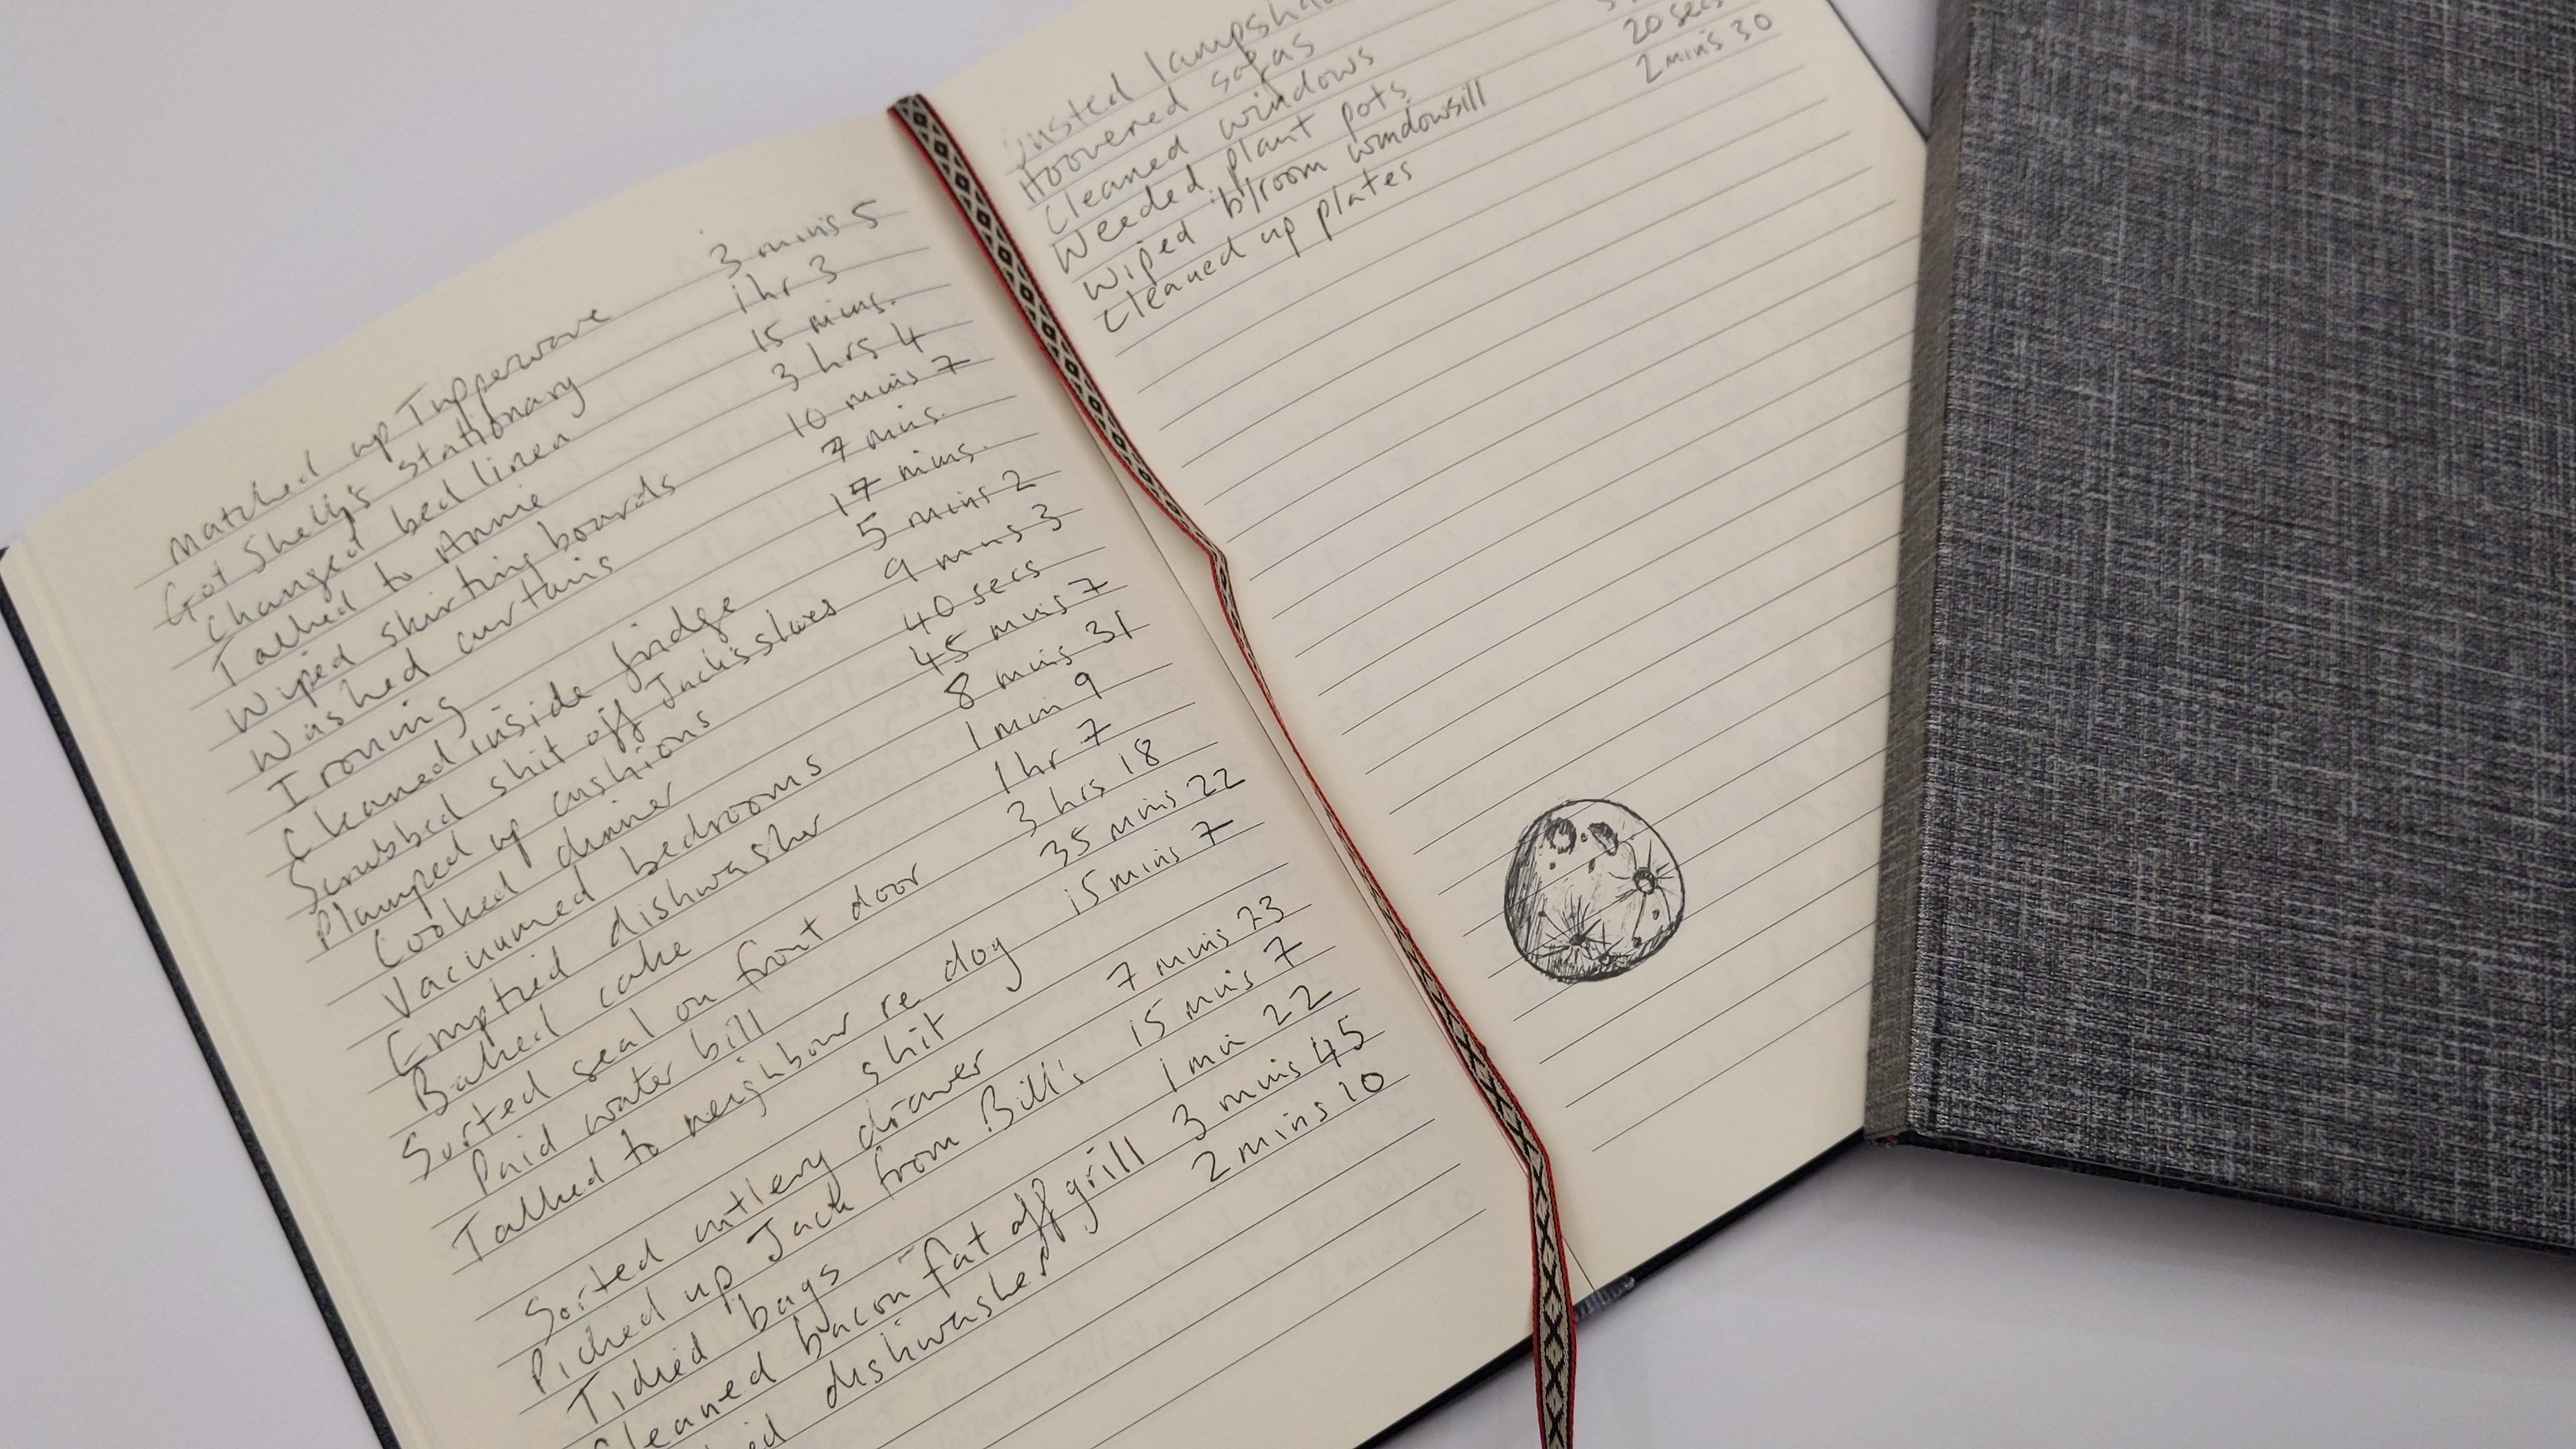 Matched up Tupperware 3 mins 5
Got Shelly's stationary 1 hr 3
Changed bed linen 15 mins.
Talked to Annie 3 hrs 4
Wiped skirting boards 10 mins 7
Washed curtains 7 mins.
Ironing 17 mins.
Cleaned inside fridge 5 mins 2
Scrubbed shit off Jack's shoes 9 mins 3
Plumped up cushions 40 secs
Cooked dinner 45 mins 7
Vacuumed bedrooms 8 mins 31
Emptied dishwasher 1 min 9
Baked cake 1 hr 7
Sorted seal on front door 3 hrs 18
Paid water bill 35 mins 22
Talked to neighbour re dog 15 mins 7
shit
Sorted cutlery drawer 7 mins 23
Picked up Jack from Bill's 15 mins 7
Tidied bags - 1 min 22
Cleaned bacon fat off grill 3 mins 45
dishwasher 2 mins 10
Dusted
Hoovered sofas
Cleaned windows
Weeded plant pots
Wiped b/room windowsill 20 secs
Cleaned up plates 2 mins 30